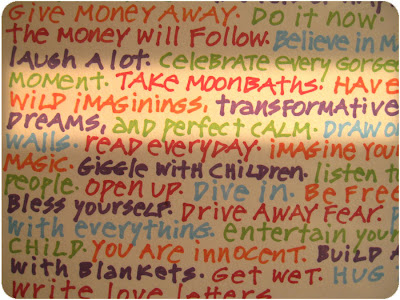 Give Money Away. Do it now.
the Money will Follow. Believe in M
laugh A lot. Celebrate every gorgeo
moment. Take Moonbaths. Have
wild imaginings, transformative
Dreams, and perfect calm. Draw on
walls. read everyday. imagine your
magic. Giggle with children. listen to
people. open up. Dive in. Be Free
Bless yourself. Drive away fear.
with everything. entertain your
child. You are innocent. Build a
with Blankets. Get wet. Hug
write love letters.